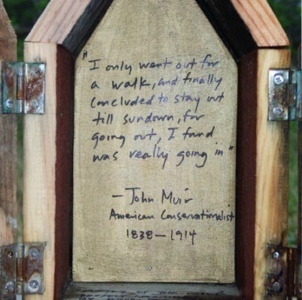 "I only went out for
a walk, and finally
concluded to stay out
till sundown, for
going out, I found
was really going in"
– John Muir
American Conservationalist
1838 – 1914